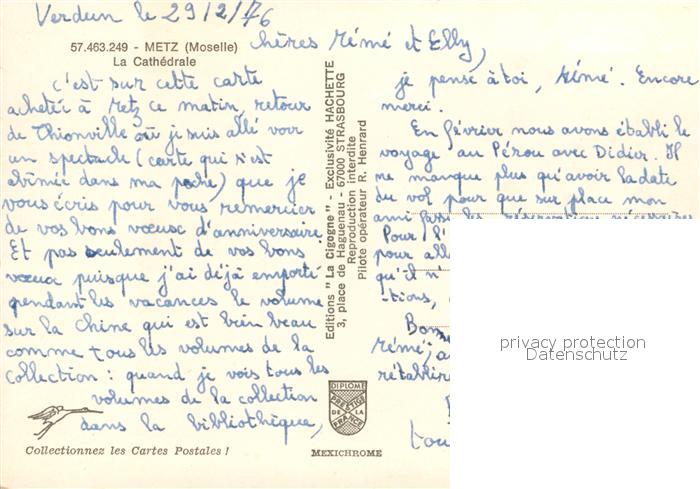 Verdun le 29/2/76
57.463.249 - METZ (Moselle)
La Cathédrale
Chères Mémé et Elly,
c'est sur cette carte
achetée à Metz ce matin, retour
de Thionville où je suis allé voir
un spectacle (carte qui s'est
abîmée dans ma poche) que je
vous écris pour vous remercier
de vos bons voeux d'anniversaire
Et pas seulement de vos bons
voeux puisque j'ai déjà emporté
pendant les vacances le volume
sur la Chine qui est bien beau
comme tous les volumes de la
collection : quand je vois tous les
volumes de la collection
dans la bibliothèque,
Collectionnez les Cartes Postales !
Editions "La Cigogne" - Exclusivité HACHETTE
3, place de Haguenau - 67000 STRASBOURG
Reproduction interdite
Pilote opérateur R. Henrard
DIPLOME
PRESTIGE
DE LA
FRANCE
MEXICHROME
je pense à toi, Mémé. Encore
merci.
En février nous avons établi le
voyage au Pérou avec Didier. Il
ne manque plus qu'avoir la date
du vol pour que sur place mon
ami
Pour l'
pour all
qu'il n'
-tions,
Bon
Mémé, a
rétablir
tou
privacy protection
Datenschutz